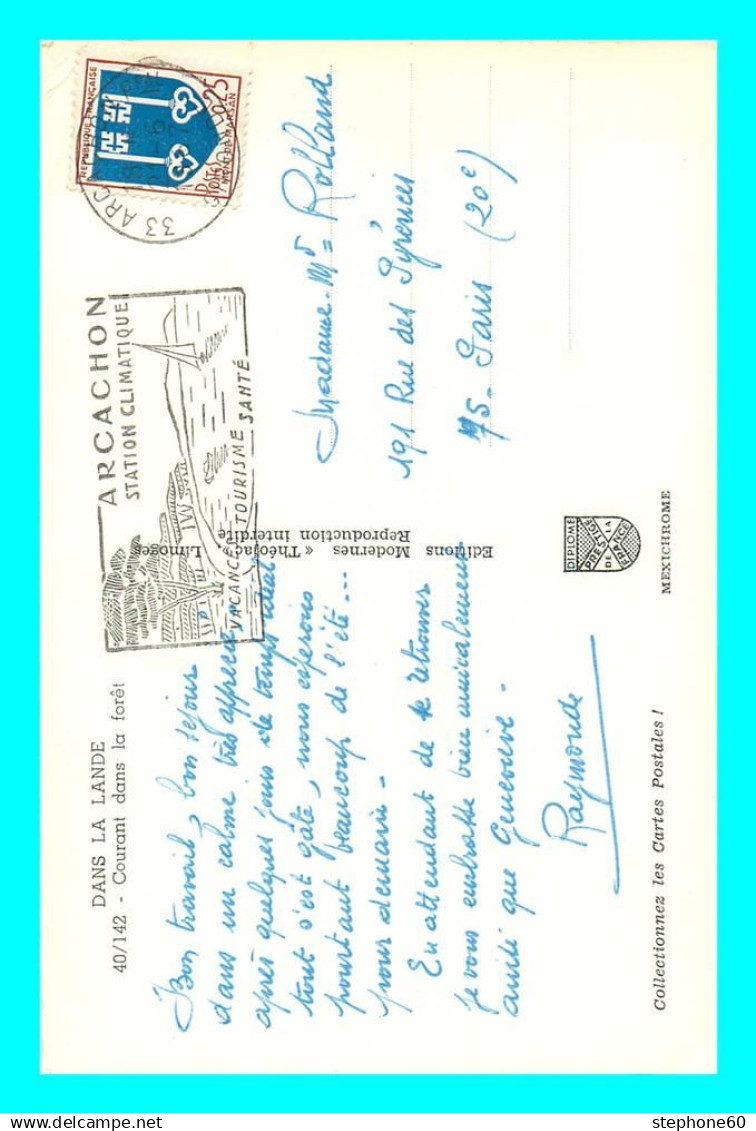 DANS LA LANDE
40/142 - Courant dans la forêt
Bon travail, bon séjour
dans un calme très apprécié,
après quelques jours de temps idéal
tout s'est gâté, nous espérons
pourtant beaucoup de l'été...
pour demain.
En attendant de te retrouver
je vous embrasse bien amicalement
ainsi que Geneviève.
Raymonde
Collectionnez les Cartes Postales !
Editions Modernes « Théojac », Limoges
Reproduction interdite
ARCACHON
STATION CLIMATIQUE
VACANCES TOURISME SANTÉ
REPUBLIQUE FRANÇAISE
0,25
POSTES
MONT-DE-MARSAN
33 ARCACHON
Madame. Mr Rolland
191 Rue des Pyrénées
75. Paris (20e)
DIPLOME
PRESTIGE
DE LA
FRANCE
MEXICHROME
stephone60